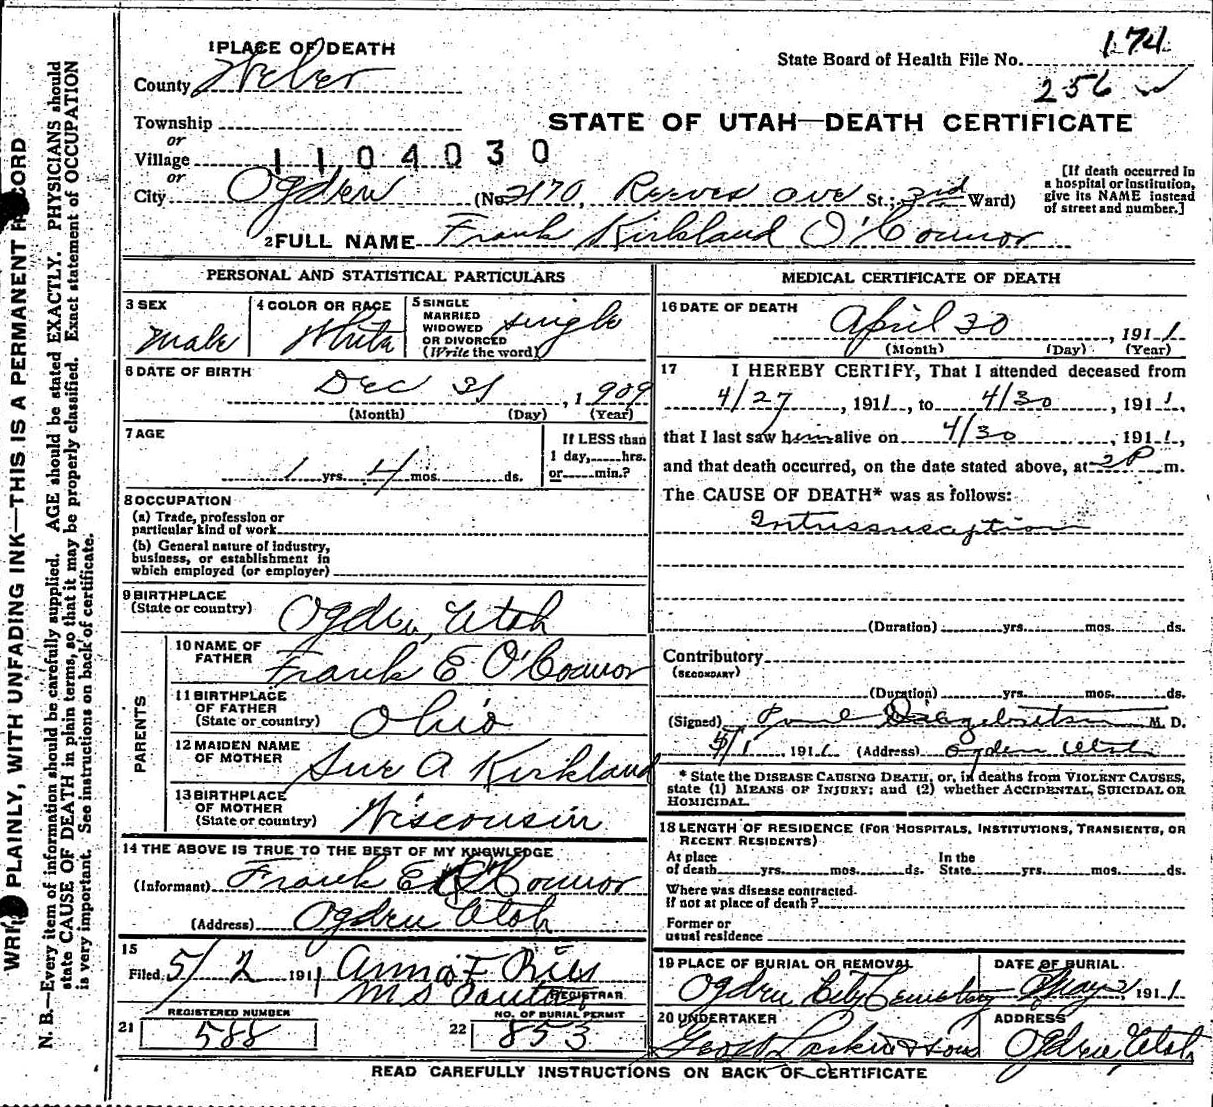 WRITE PLAINLY, WITH UNFADING INK—THIS IS A PERMANENT RECORD
N. B.—Every item of information should be carefully supplied. AGE should be stated EXACTLY. PHYSICIANS should
state CAUSE OF DEATH in plain terms, so that it may be properly classified. Exact statement of OCCUPATION
is very important. See instructions on back of certificate.
1 PLACE OF DEATH
County Weber
State Board of Health File No. 174
256
Township
or
Village
1104030
or
STATE OF UTAH—DEATH CERTIFICATE
City Ogden (No. 2170, Reeves ave St.; 3rd Ward)
[If death occurred in
a hospital or institution,
give its NAME instead
of street and number.]
2 FULL NAME Frank Kirkland O'Connor
PERSONAL AND STATISTICAL PARTICULARS
3 SEX
Male
4 COLOR OR RACE
White
5 SINGLE
MARRIED
WIDOWED
OR DIVORCED
(Write the word)
single
6 DATE OF BIRTH
Dec 31, 1909
(Month) (Day) (Year)
7 AGE
1 yrs. 4 mos. ds.
If LESS than
1 day, hrs.
or min.?
8 OCCUPATION
(a) Trade, profession or
particular kind of work
(b) General nature of industry,
business, or establishment in
which employed (or employer)
9 BIRTHPLACE
(State or country)
Ogden, Utah
PARENTS
10 NAME OF
FATHER
Frank E O'Connor
11 BIRTHPLACE
OF FATHER
(State or country)
Ohio
12 MAIDEN NAME
OF MOTHER
Sue A Kirkland
13 BIRTHPLACE
OF MOTHER
(State or country)
Wisconsin
14 THE ABOVE IS TRUE TO THE BEST OF MY KNOWLEDGE
(Informant) Frank E O'Connor
(Address) Ogden Utah
15
Filed 5/2 1911 Anna F Ries
REGISTRAR
REGISTERED NUMBER
21 588
NO. OF BURIAL PERMIT
22 853
MEDICAL CERTIFICATE OF DEATH
16 DATE OF DEATH
April 30, 1911
(Month) (Day) (Year)
17 I HEREBY CERTIFY, That I attended deceased from
4/27, 1911, to 4/30, 1911,
that I last saw him alive on 4/30, 1911,
and that death occurred, on the date stated above, at 2 P m.
The CAUSE OF DEATH* was as follows:
Intussusception
(Duration) yrs. mos. ds.
Contributory
(SECONDARY)
(Duration) yrs. mos. ds.
(Signed) M. D.
5/1 1911 (Address) Ogden Utah
* State the DISEASE CAUSING DEATH, or, in deaths from VIOLENT CAUSES,
state (1) MEANS OF INJURY; and (2) whether ACCIDENTAL, SUICIDAL OR
HOMICIDAL.
18 LENGTH OF RESIDENCE (FOR HOSPITALS, INSTITUTIONS, TRANSIENTS, OR
RECENT RESIDENTS)
At place
of death yrs. mos. ds.
In the
State yrs. mos. ds.
Where was disease contracted
If not at place of death?
Former or
usual residence
19 PLACE OF BURIAL OR REMOVAL
Ogden City Cemetery
DATE OF BURIAL
May 2, 1911
20 UNDERTAKER
Larkin & Sons
ADDRESS
Ogden, Utah
READ CAREFULLY INSTRUCTIONS ON BACK OF CERTIFICATE